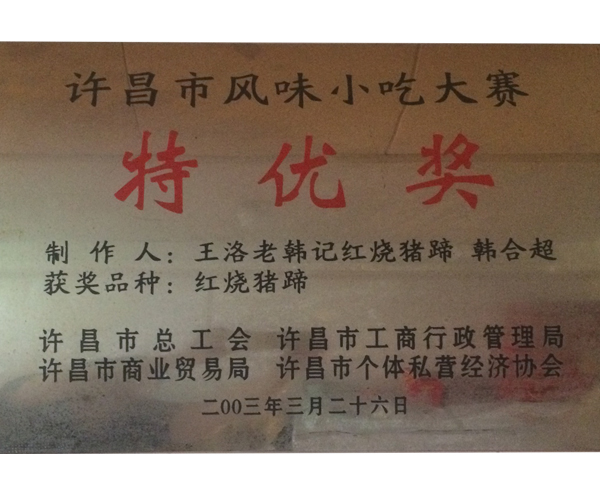 许昌市风味小吃大赛
特优奖
制作人：王洛老韩记红烧猪蹄 韩合超
获奖品种：红烧猪蹄
许昌市总工会 许昌市工商行政管理局
许昌市商业贸易局 许昌市个体私营经济协会
二00三年三月二十六日